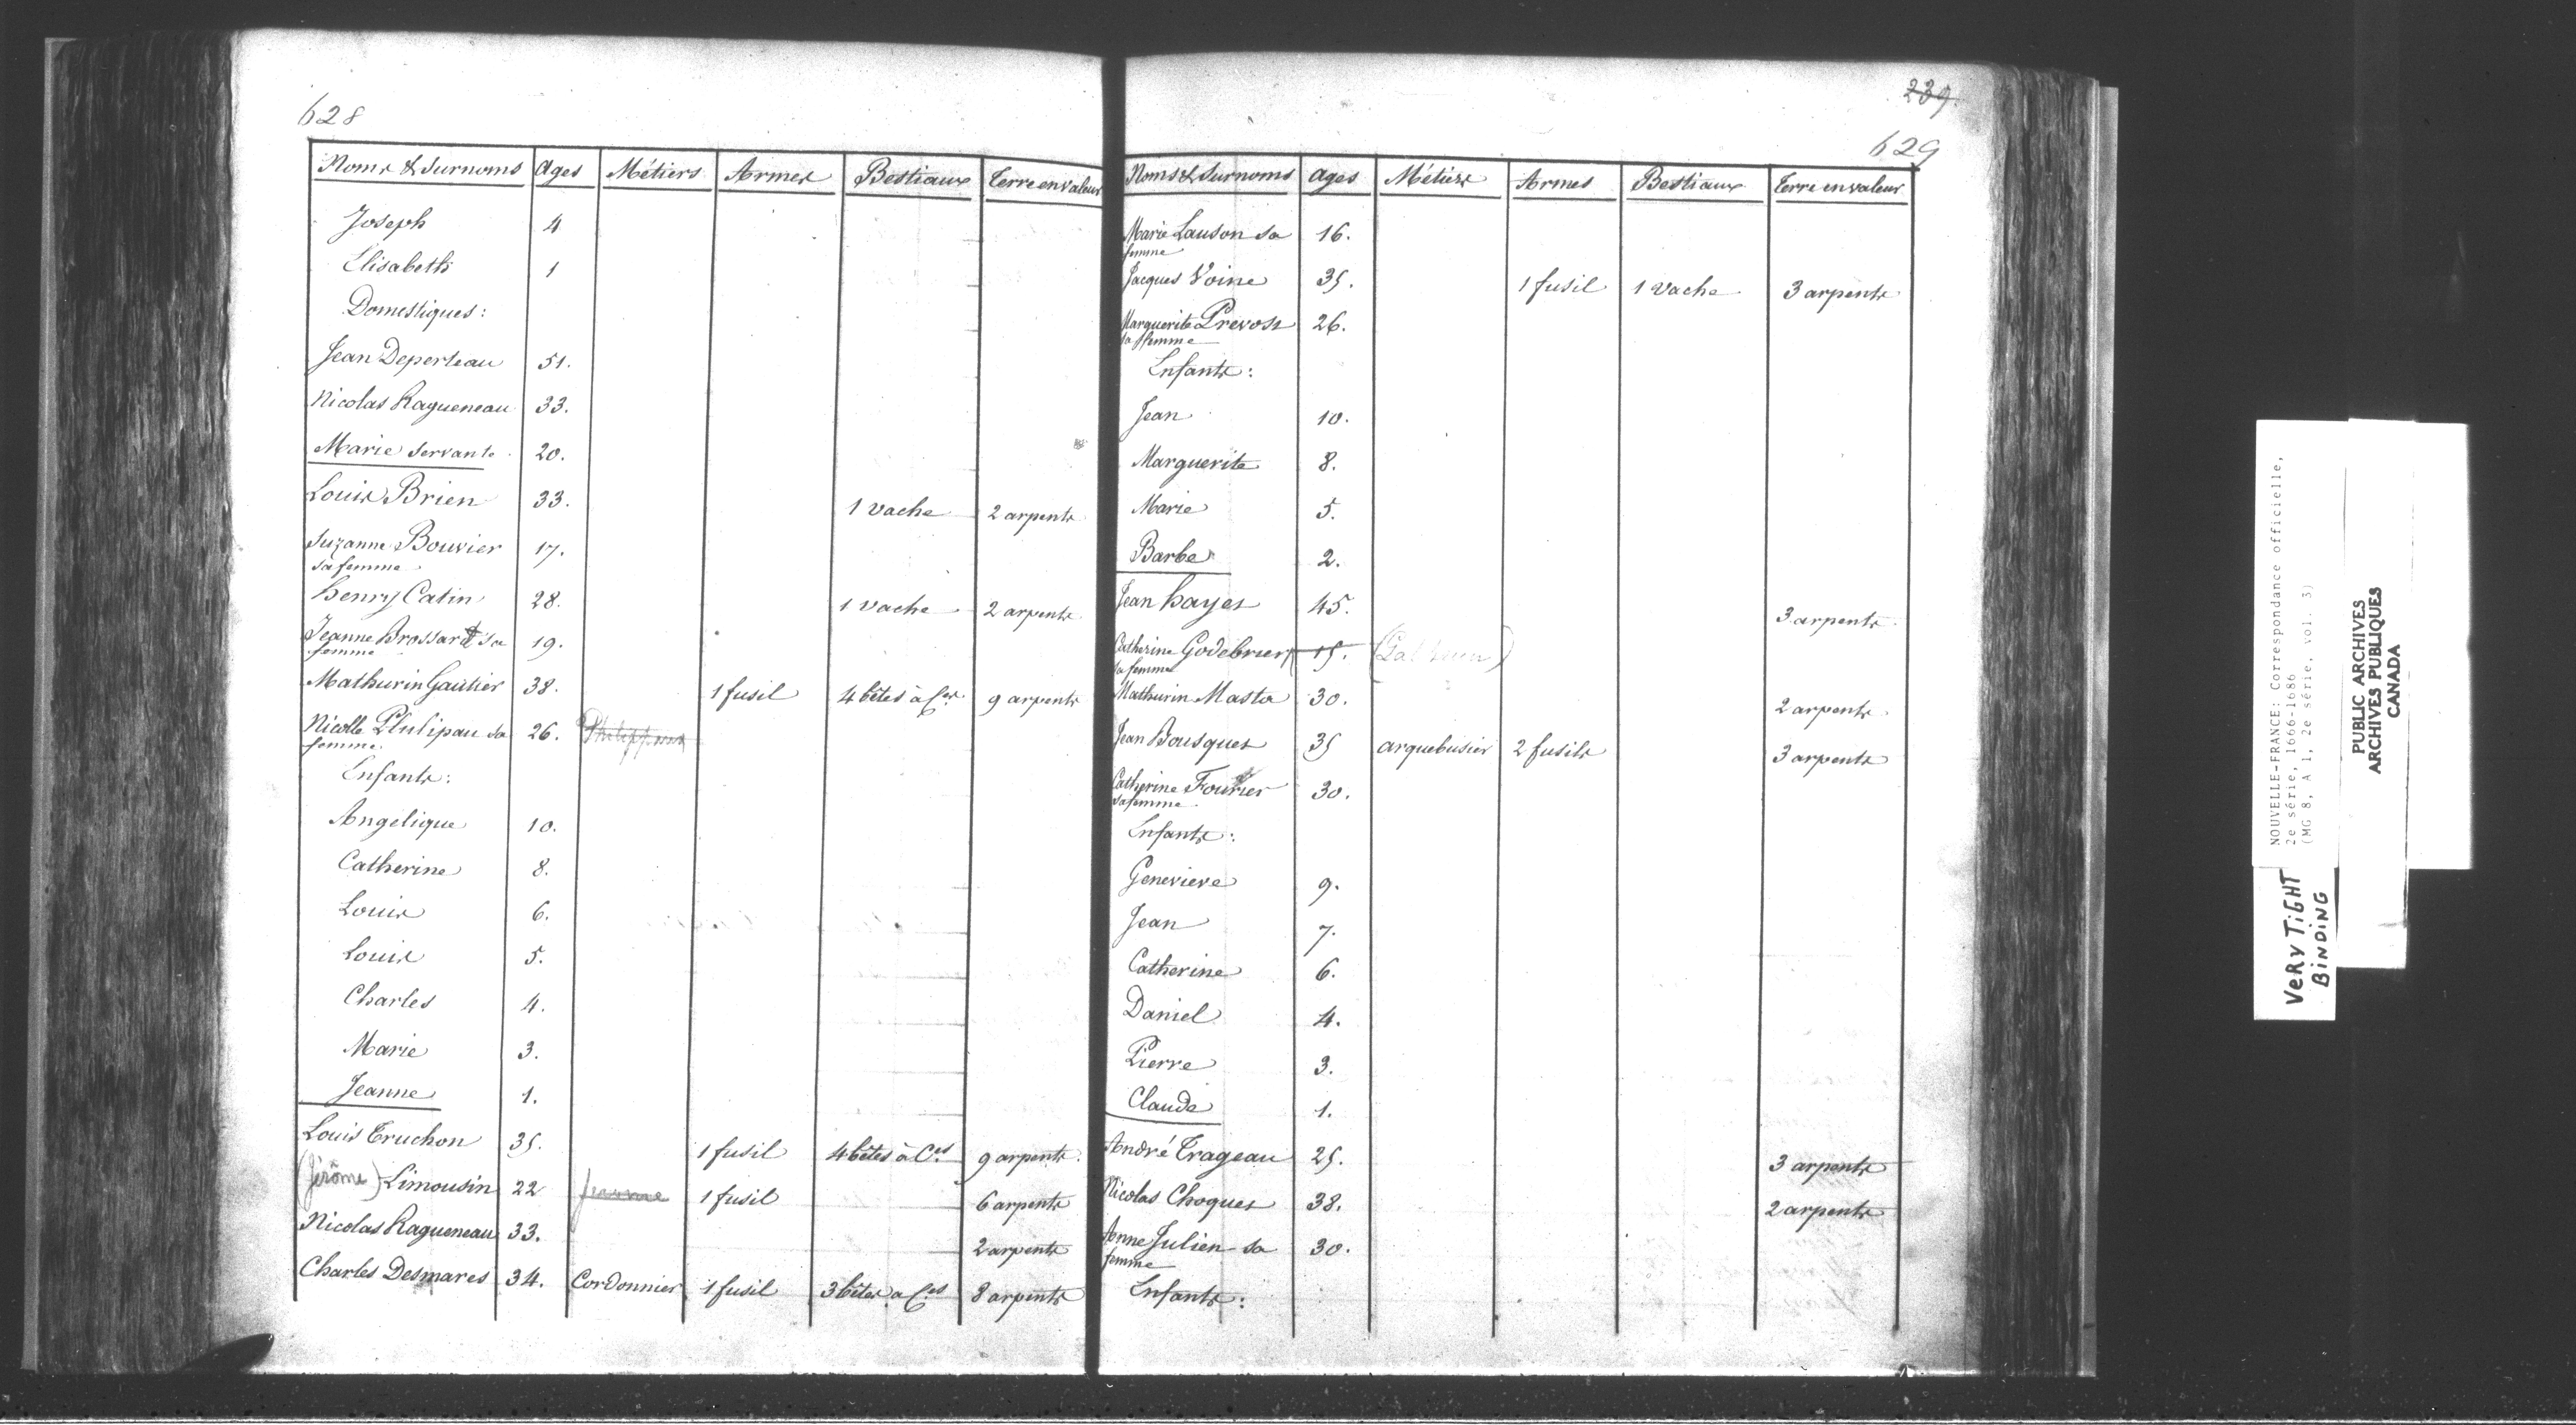 628
Noms & Surnoms Ages Métiers Armes Bestiaux Terre en valeur
Joseph 4
Elisabeth 1
Domestiques :
Jean Deperteau 51.
Nicolas Ragueneau 33.
Marie Servante 20.
Louis Brien 33. 1 vache 2 arpents
Suzanne Bouvier 17.
sa femme
Henry Catin 28. 1 vache 2 arpents
Jeanne Brossard sa 19.
femme
Mathurin Gautier 38. 1 fusil 4 bêtes à C.es 9 arpents
Nicolle Phlipau sa 26.
femme
Enfants :
Angelique 10.
Catherine 8.
Louis 6.
Louis 5.
Charles 4.
Marie 3.
Jeanne 1.
Louis Truchon 35. 1 fusil 4 bêtes à C.es 9 arpents
(Jérôme) Limousin 22 Jerome 1 fusil 6 arpents
Nicolas Ragueneau 33. 2 arpents
Charles Desmares 34. Cordonnier 1 fusil 3 bêtes a C.es 8 arpents
239.
629
Noms & Surnoms Ages Métiers Armes Bestiaux Terre en valeur
Marie Lauson sa 16.
femme
Jacques Voine 35. 1 fusil 1 vache 3 arpents
Marguerite Prevost 26.
sa femme
Enfants :
Jean 10.
Marguerite 8.
Marie 5.
Barbe 2.
Jean hayes 45. 3 arpents
Catherine Godebrier 15.
sa femme
Mathurin Masta 30. 2 arpents
Jean Bousques 35 arquebusier 2 fusils 3 arpents
Catherine Fourier 30.
sa femme
Enfants :
Genevieve 9.
Jean 7.
Catherine 6.
Daniel 4.
Pierre 3.
Claude 1.
André Trageau 25. 3 arpents
Nicolas Choques 38. 2 arpents
Anne Julien sa 30.
femme
Enfants :
NOUVELLE-FRANCE: Correspondance officielle,
2e série, 1666-1686
(MG 8, A 1, 2e série, vol. 3)
VERY TIGHT
BINDING
PUBLIC ARCHIVES
ARCHIVES PUBLIQUES
CANADA